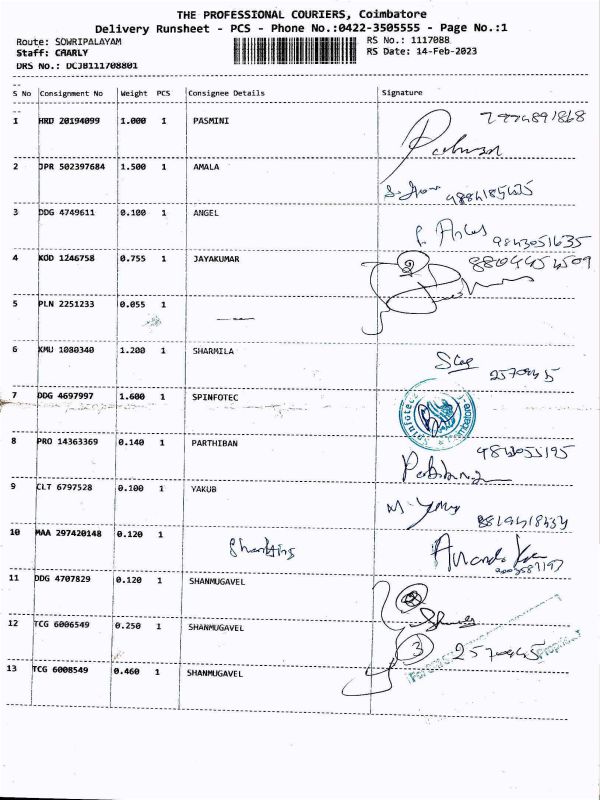 THE PROFESSIONAL COURIERS, Coimbatore
Delivery Runsheet - PCS - Phone No.:0422-3505555 - Page No.:1
Route: SOWRIPALAYAM
RS No.: 1117088
Staff: CAARLY
RS Date: 14-Feb-2023
DRS No.: DCJB111708801
S No Consignment No Weight PCS Consignee Details Signature
1 HRD 20194099 1.000 1 PASMINI
2 JPR 502397684 1.500 1 AMALA
3 DDG 4749611 0.100 1 ANGEL
9843051635
4 KOD 1246758 0.755 1 JAYAKUMAR
2
5 PLN 2251233 0.055 1
6 KMU 1080340 1.200 1 SHARMILA
7 DDG 4697997 1.600 1 SPINFOTEC
Spinfotec
8 PRO 14363369 0.140 1 PARTHIBAN
9 CLT 6797528 0.100 1 YAKUB
10 MAA 297420148 0.120 1
11 DDG 4707829 0.120 1 SHANMUGAVEL
12 TCG 6006549 0.250 1 SHANMUGAVEL
3
13 TCG 6008549 0.460 1 SHANMUGAVEL